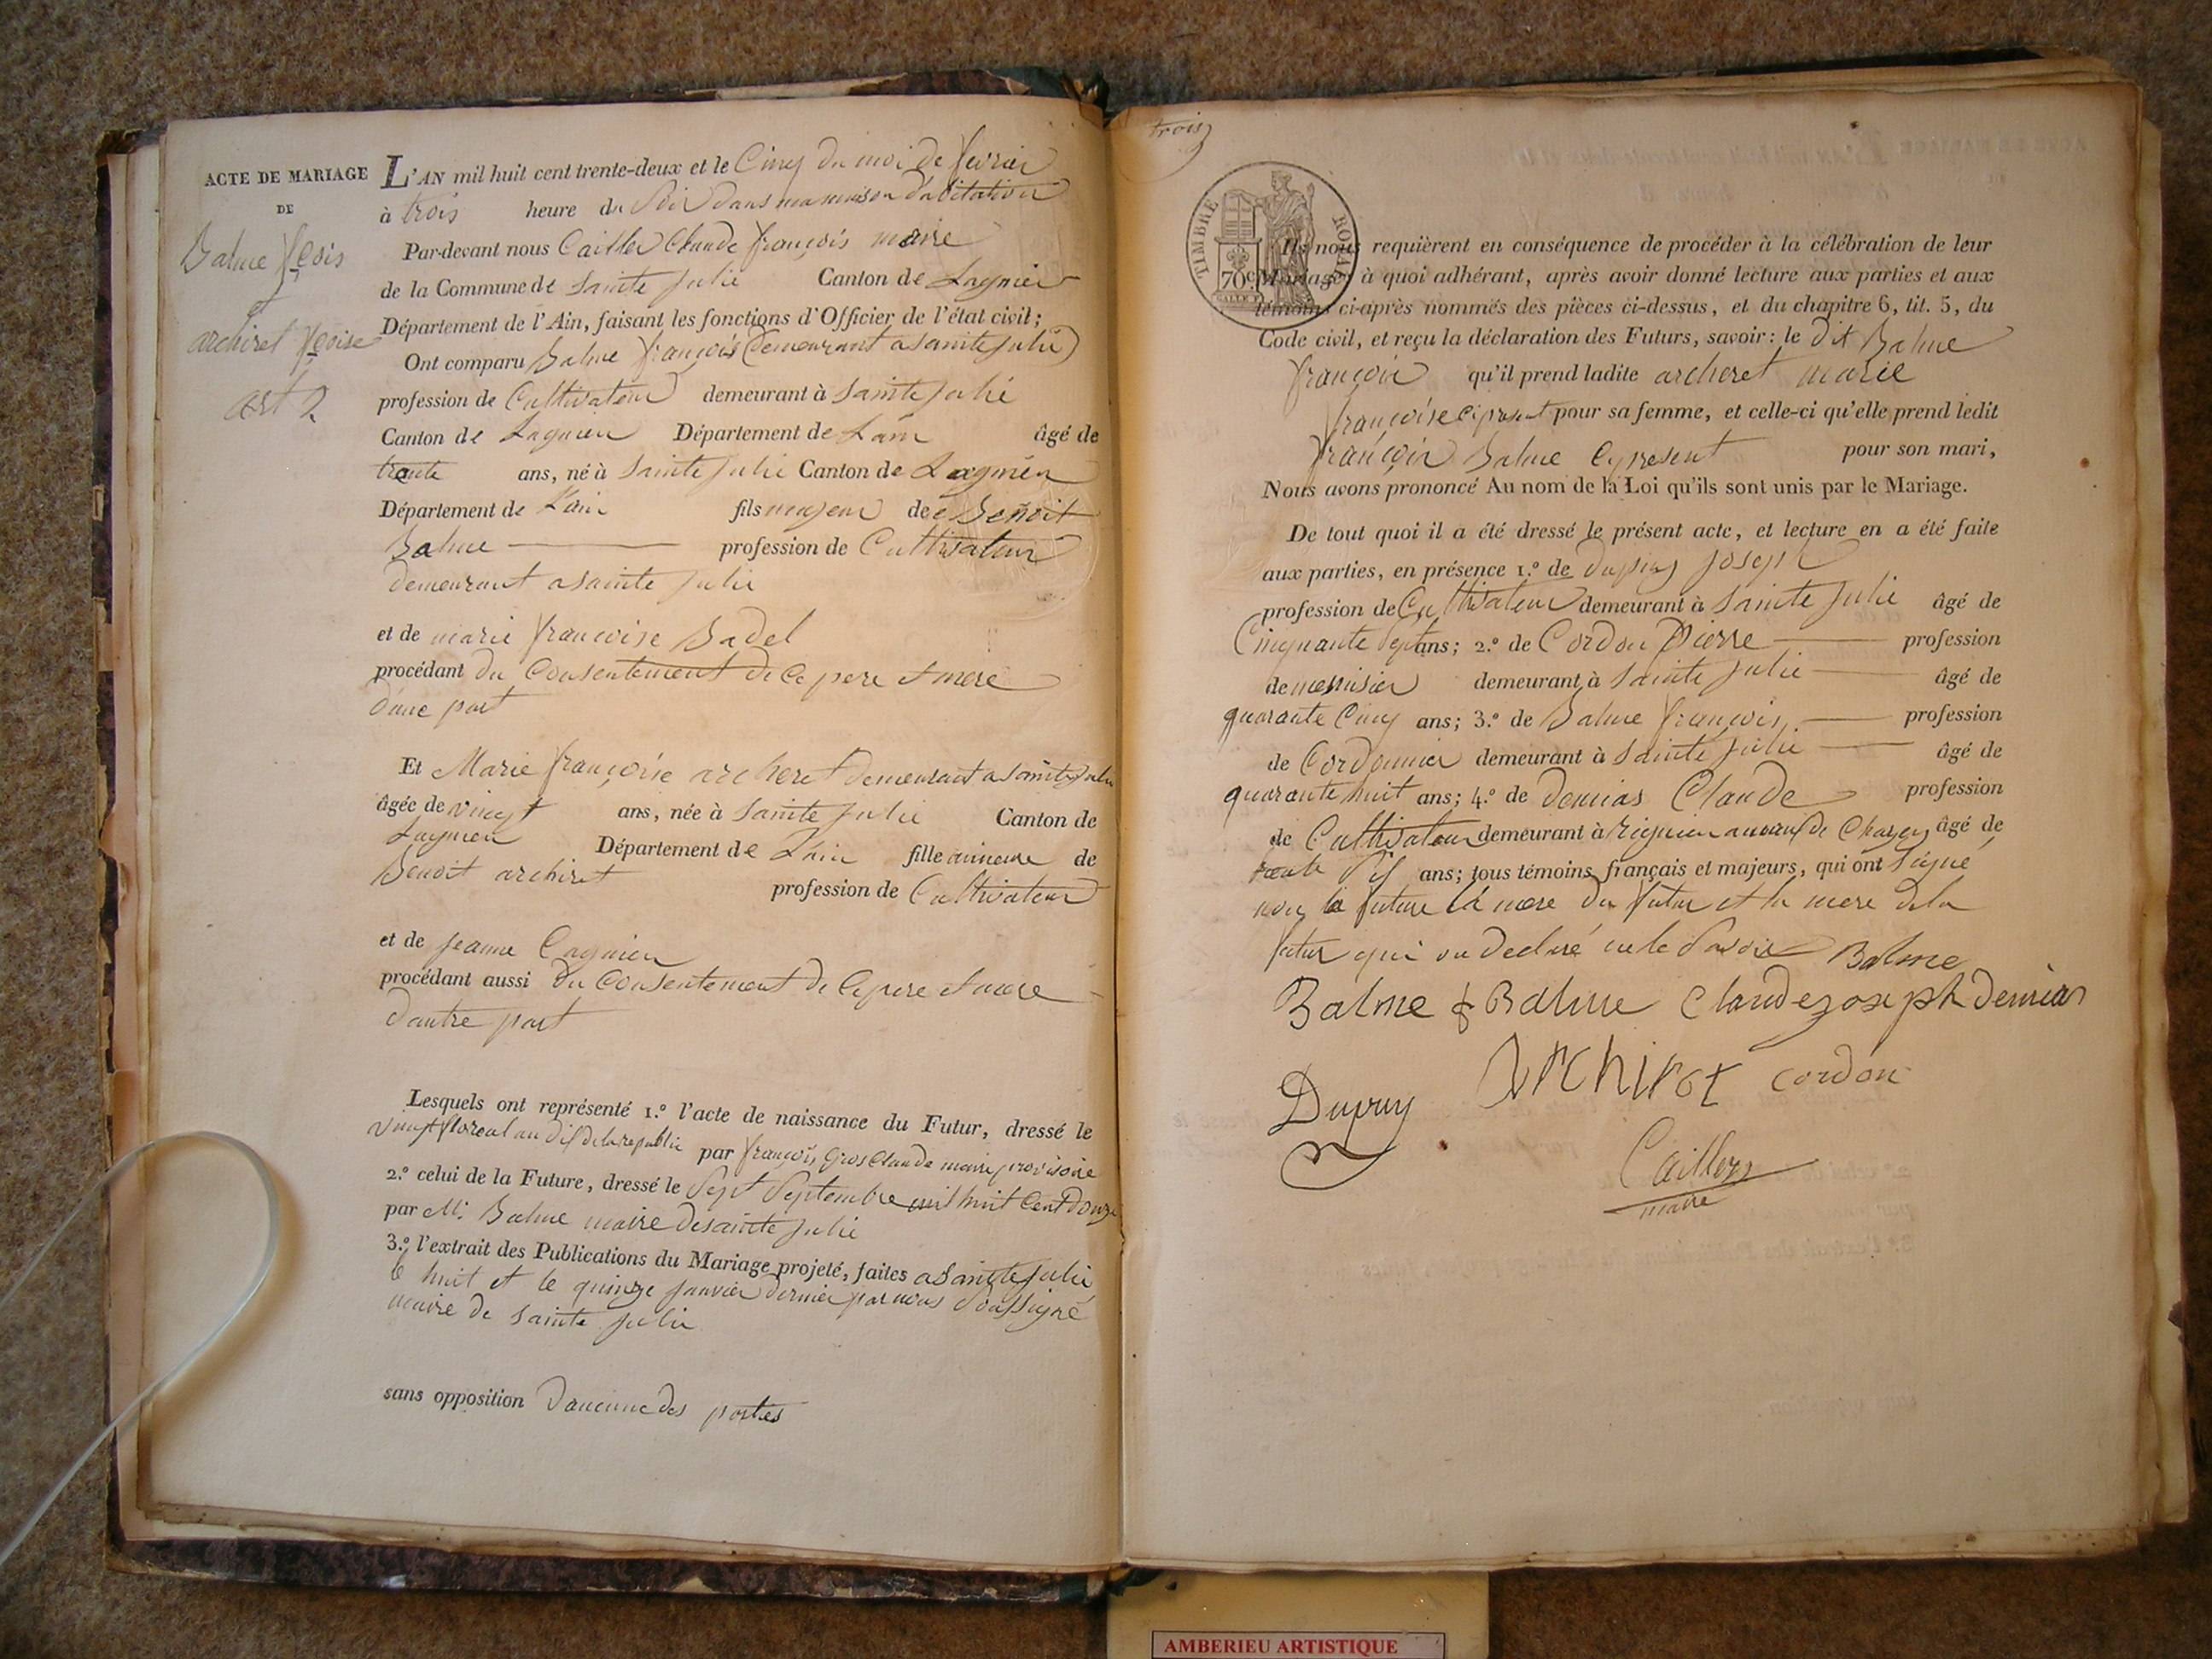 ACTE DE MARIAGE
DE
Balme fçois
et
archiret fçoise
art 2
L'AN mil huit cent trente-deux et le Cinq du moi de fevrier
à trois heure du Soir dans ma maison d'abitation
Par-devant nous Cailler Claude françois maire
de la Commune de Sainte Julie Canton de Lagnieu
Département de l'Ain, faisant les fonctions d'Officier de l'état civil;
Ont comparu Balme françois (demeurant a sainte julie)
profession de Cultivateur demeurant à Sainte Julie
Canton de Lagnieu Département de Lain âgé de
trente ans, né à Sainte Julie Canton de Lagnieu
Département de Lain fils majeur de Benoit
Balme profession de Cultivateur
demeurant a sainte Julie
et de marie francoise Badel
procédant du Consentement de Ce pere et mere
d'une part
Et Marie françoise archeret demeurant a sainte Julie
âgée de vingt ans, née à Sainte Julie Canton de
Lagnieu Département de Lain fille mineure de
Benoit archiret
profession de Cultivateur
et de jeanne Cagnieu
procédant aussi du Consentement de Ce pere et mere
dautre part
Lesquels ont représenté 1.° l'acte de naissance du Futur, dressé le
vingt floreal an dix de la republic par françois Gros Claude maire provisoire
2.° celui de la Future, dressé le Sept Septembre mil huit Cent Douze
par Mr. Balme maire de sainte Julie
3.° l'extrait des Publications du Mariage projeté, faites a Sainte Julie
le huit et le quinze janvier dernier par nous Soussigné
maire de Sainte Julie
sans opposition d'aucune des parties
trois
TIMBRE ROYAL
70c
Ils nous requièrent en conséquence de procéder à la célébration de leur
Mariage, à quoi adhérant, après avoir donné lecture aux parties et aux
témoins ci-après nommés des pièces ci-dessus, et du chapitre 6, tit. 5, du
Code civil, et reçu la déclaration des Futurs, savoir: le dit Balme
françois qu'il prend ladite archeret marie
françoise ci present pour sa femme, et celle-ci qu'elle prend ledit
françois Balme cy present pour son mari,
Nous avons prononcé Au nom de la Loi qu'ils sont unis par le Mariage.
De tout quoi il a été dressé le présent acte, et lecture en a été faite
aux parties, en présence 1.° de dupuy Joseph
profession de Cultivateur demeurant à Sainte Julie âgé de
Cinquante Sept ans; 2.° de Cordon Pierre profession
de menisier demeurant à Sainte Julie âgé de
quarante Cinq ans; 3.° de Balme françois profession
de Cordonnier demeurant à Sainte Julie âgé de
quarante huit ans; 4.° de demias Claude profession
de Cultivateur demeurant à de Chazey âgé de
trente Six ans; tous témoins français et majeurs, qui ont signé
non la future la mere du futur et la mere dela
futur qui on declaré ne le Savoir Balme
Balme f Balme Claude joseph Demias
Dupuy Archiret cordon
Cailler
maire
AMBERIEU ARTISTIQUE